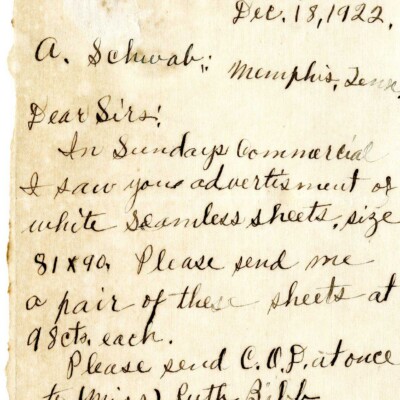 Dec. 18, 1922.
A. Schwab;
Memphis, Tenn.
Dear Sirs:
In Sundays Commercial
I saw your advertisment of
white seamless sheets, size
81 x 90. Please send me
a pair of these sheets at
98cts. each.
Please send C.O.D. at once
to (Miss) Ruth Bibb